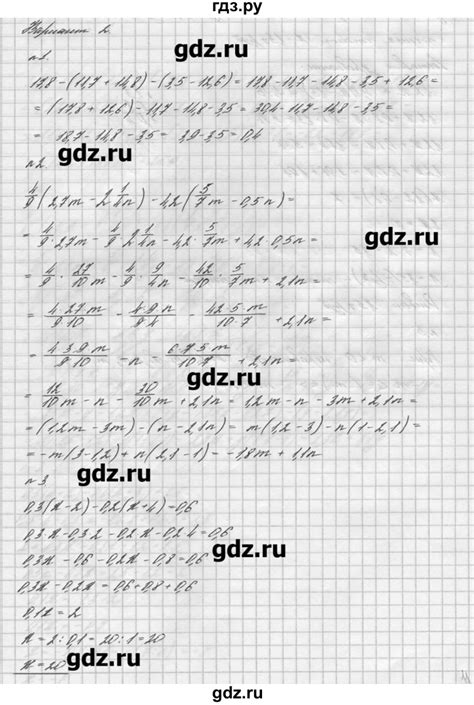 гдз.ру
Вариант 2
n1.
17,8-(11,7+14,8)-(3,5-12,6)=17,8-11,7-14,8-3,5+12,6=
=(17,8+12,6)-11,7-14,8-3,5=30,4-11,7-14,8-3,5=
= 18,7-14,8-3,5= 3,9-3,5=0,4
gdz.ru
n2.
4/9(2,7m-2 1/4n)-4,2(5/7m-0,5n)=
= 4/9·2,7m- 4/9·2 1/4n-4,2·5/7m+4,2·0,5n=
= 4/9·27/10m- 4/9·9/4n- 42/10·5/7m+2,1n=
= 4·27m/9·10 - 4·9n/9·4 - 42·5m/10·7 +2,1n=
= 4·3·9m/9·10 -n- 6·7·5m/10·7 +2,1n=
= 12/10m-n- 30/10m+2,1n=1,2m-n-3m+2,1n=
=(1,2m-3m)-(n-2,1n)= m(1,2-3)-n(1-2,1)=
=-m(3-1,2)+n(2,1-1)=-1,8m+1,1n
n3
0,3(x-2)-0,2(x+4)=0,6
0,3x-0,3·2-0,2x-0,2·4=0,6
0,3x-0,6-0,2x-0,8=0,6
0,3x-0,2x=0,6+0,8+0,6
0,1x=2
x=2:0,1=20:1=20
x=20
gdz.ru